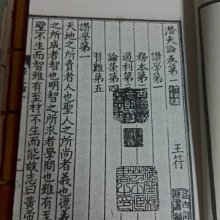 潜夫論卷第一
王符
讚學第一
務本第二
遏利第三
論榮第四
賢難第五
讚學第一
天地之所貴者人也聖人之所尚者義也德義
之所成者智也明智之所求者學問也雖有至
聖不生而智雖有至材不生而能故志曰黃帝